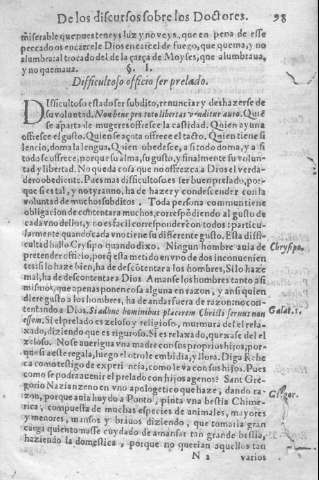 De los discursos sobre los Doctores. 98
miserable que pues teneys luz y no veys, que en pena de esse
peccado os encarcele Dios en carcel de fuego, que quema, y no
alumbra: al trocado del de la çarça de Moyses, que alumbraua,
y no quemaua. §. I.
Difficultoso officio ser prelado.
Difficultoso estado ser subdito, renunciar y deshazerse de
su voluntad. Non bene pro toto libertas venditur auro. Quiē
se aparta de mugeres offresce la castidad. Quien ayuna
offresce el gusto. Quien se açota offrece el tacto. Quien tiene si
lencio, doma la lengua. Quien obedesce, a si todo doma, y a si
todo se offrece, porque su alma, su gusto, y finalmente su volun-
tad y libertad. No queda cosa que no offrezca a Dios el verda-
dero obediente. Pues mas difficultoso es ser buen prelado, por
que si es tal, y no tyranno, ha de hazer y condescender con la
voluntad de muchos subditos. Toda persona commun tiene
obligacion de contentar a muchos, correspōdiendo al gusto de
cada vno dellos, y no es facil corresponder con todos: particu-
larmente quando cada vno tiene su differente gusto. Esta diffi-
cultad hallo Crysipo quando dixo. Ningun hombre auia de
pretender officio, porq̄ esta metido en vno de dos inconuenien
tes: si lo haze bien, ha de descōtentar a los hombres, Si lo haze
mal, ha de descontentar a Dios. Amanse los hombres tanto assi
mismos, que apenas ponen cosa alguna en razon, y ansi quien
diere gusto a los hombres, ha de andar fuera de razon: no con-
tentando a Dios. Si adhuc hominibus placerem Christi seruus non
essem. Si el prelado es zeloso y religioso, murmura del el rela-
xado, diziendo que es riguroso. Si es relaxado, quexase del el
zeloso. No se auerigua vna madre con sus proprios hijos, por-
que si a este regala, luego el otro le embidia, y llora. Diga Rebe
ca como testigo de experiencia, como le va con sus hijos. Pues
como se podra auenir el prelado con hijos agenos? Sant Gre-
gorio Nazianzeno en vno apologetico que haze, dando ra-
zon, porque auia huydo a Ponto, pinta vna bestia Chime-
rica, compuesta de muchas especies de animales, mayores
y menores, mansos y brauos diziendo, que tomaria gran
carga quien tomasse cuydado de amansar tan grande bestia,
haziendo la domestica, porque no querian aquellos tan
N 2 varios
Chrysipo.
Galat. 1.
Gregor.